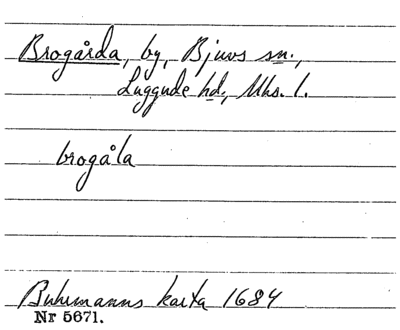 Brogårda, by, Bjuvs sn.,
Luggude hd., Mhs. l.
brogåla
Buhrmanns karta 1684
Nr 5671.